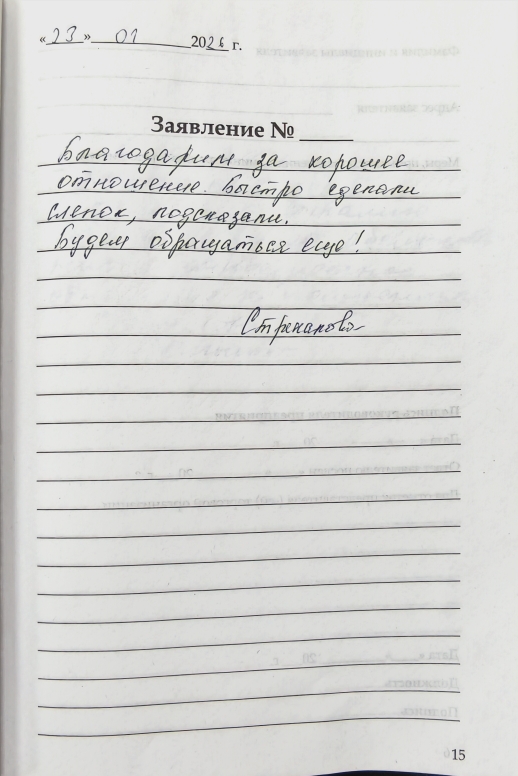 «23» 01 2026 г.
Заявление № ____
Благодарим за хорошее
отношение. Быстро сделали
слепок, подсказали.
Будем обращаться ещо!
15